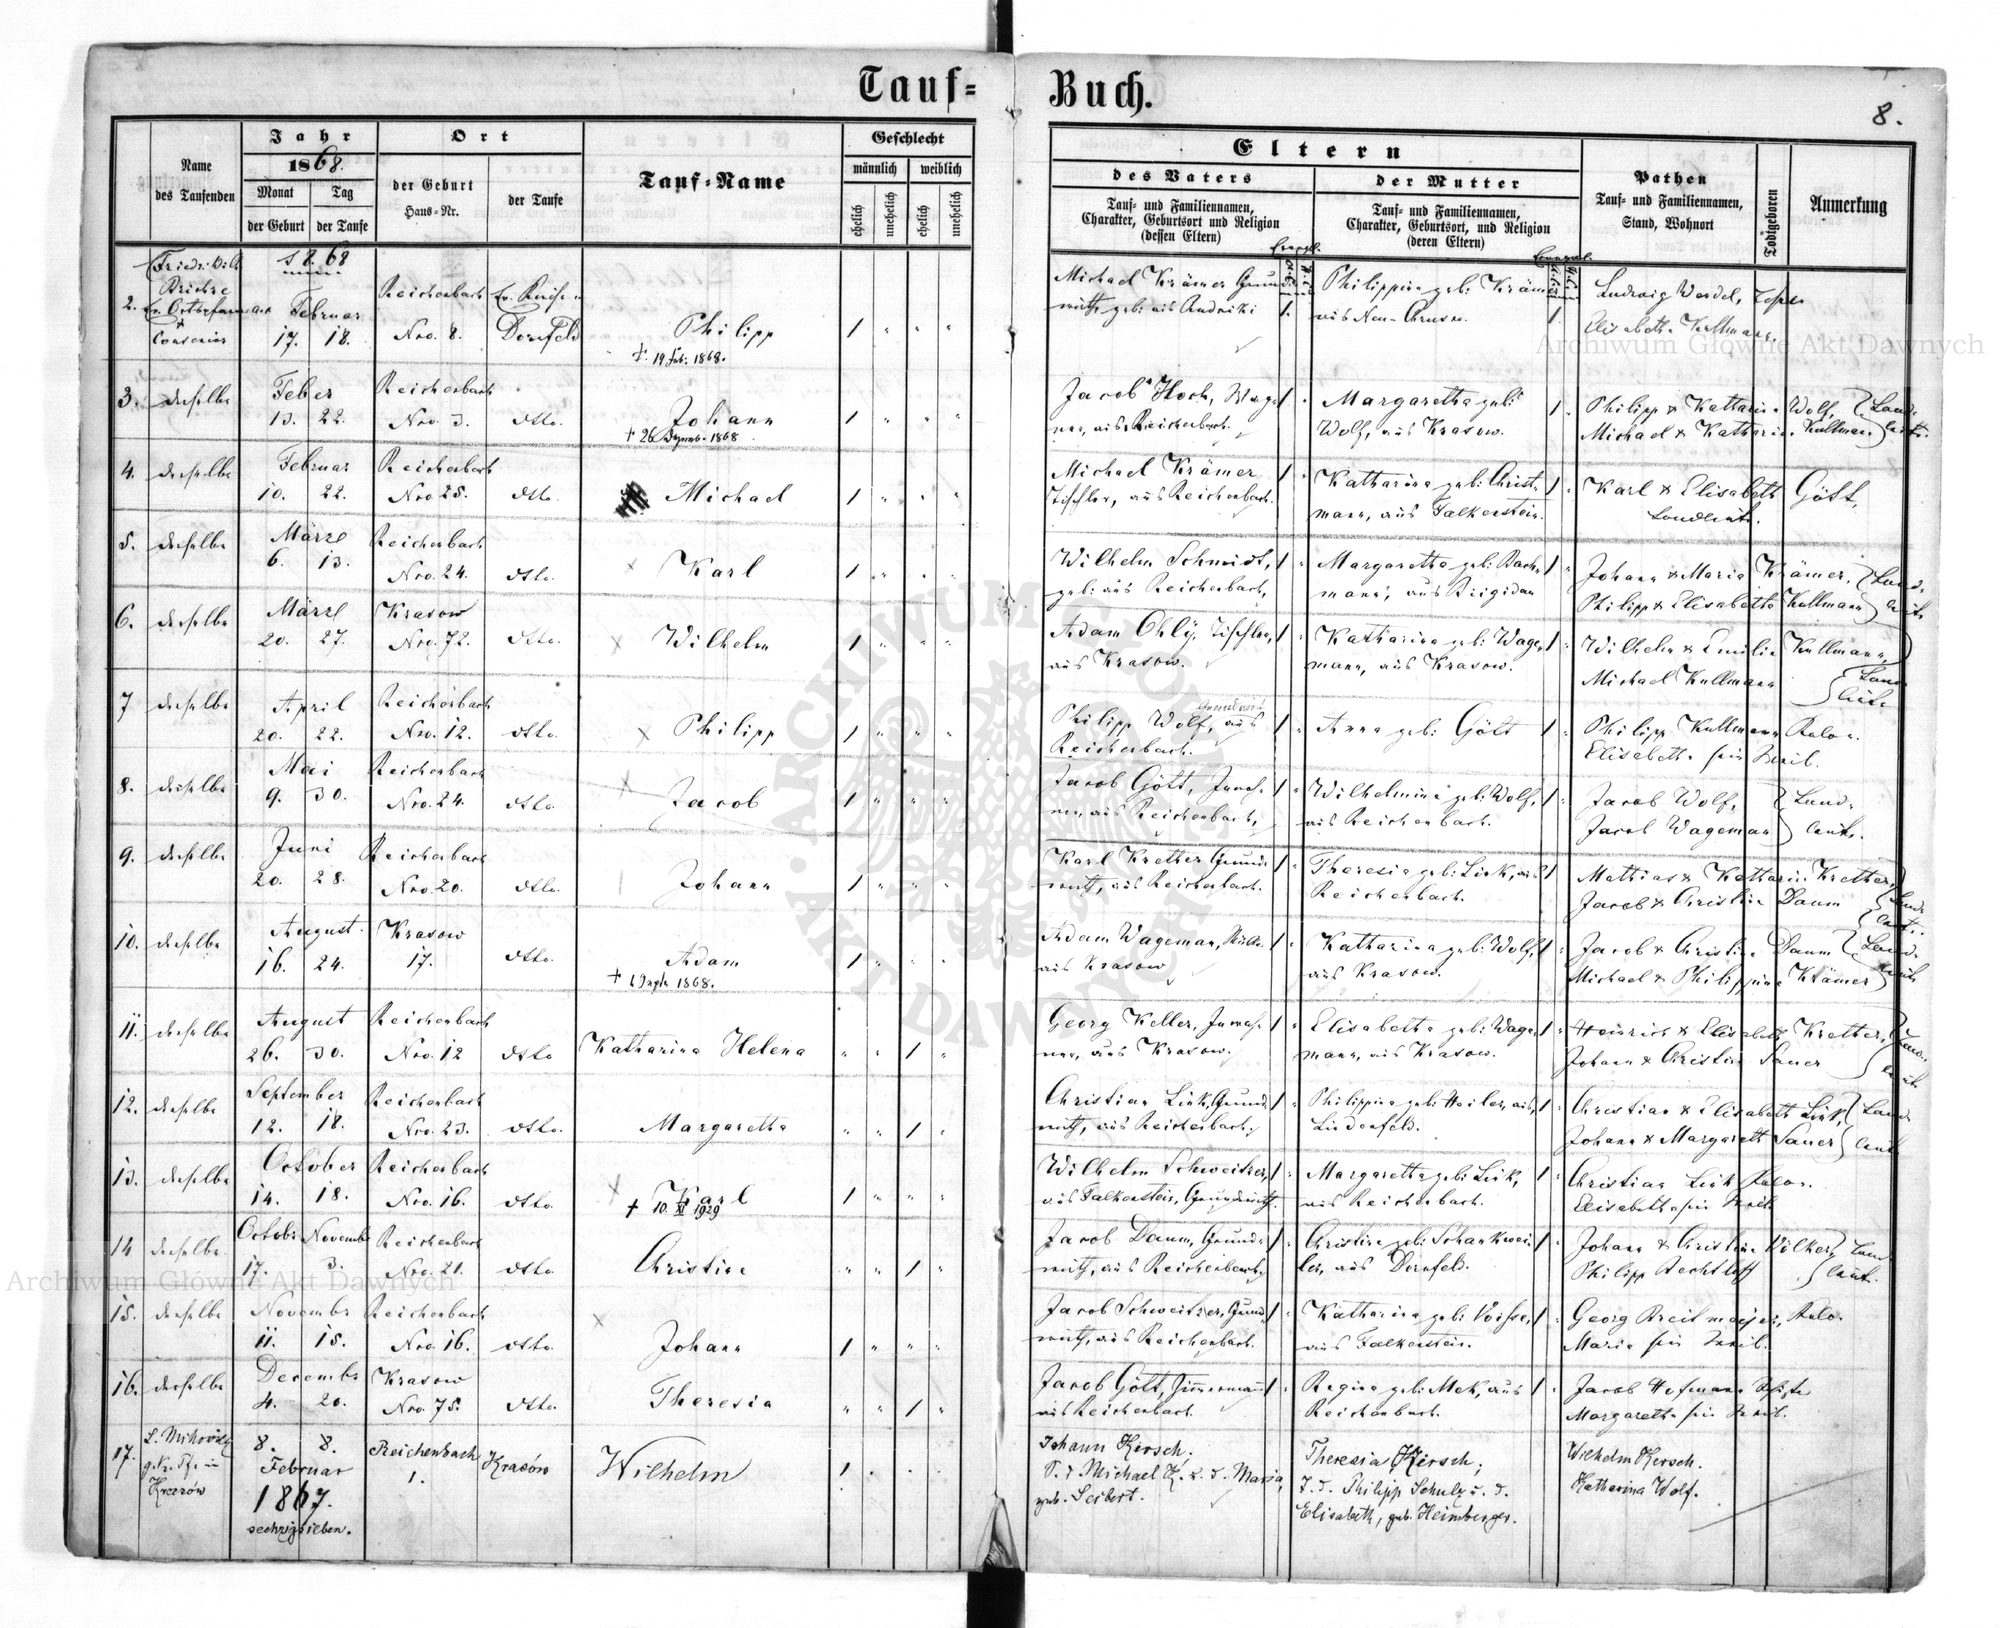 Tauf-Buch.
8.
Name des Taufenden
Jahr
1868.
Monat
Tag
der Geburt
der Taufe
Ort
der Geburt
Haus-Nr.
der Taufe
Tauf-Name
Geschlecht
männlich
weiblich
ehelich
unehelich
ehelich
unehelich
Eltern
des Vaters
Tauf- und Familiennamen,
Charakter, Geburtsort und Religion
(dessen Eltern)
der Mutter
Tauf- und Familiennamen,
Charakter, Geburtsort, und Religion
(deren Eltern)
Pathen
Tauf- und Familiennamen,
Stand, Wohnort
Todtgeboren
Anmerkung
1868
2. Februar 17. 18. Reichenbach Nro. 8. Dornfeld Philipp 1 " " "
† 19 Feb. 1868.
Michael Krämer
Philippina geb. Krämer
Ludwig Wendel,
Elisabetha Kullmann.
3. derselbe Feber 13. 22. Reichenbach Nro. 3. dtto. Johann 1 " " "
† 26 1868
Jacob Hoch, aus Reichenbach.
Margaretha geb. Wolf, aus Krasow.
Philipp & Katharina Wolf,
Michael & Katharina Kullmann
4. derselbe Februar 10. 22. Reichenbach Nro. 25. dtto. Michael 1 " " "
Michael Krämer Tischler, aus Reichenbach.
Katharina geb. Christmann, aus Falkenstein.
Karl & Elisabeth Gött,
Landleute.
5. derselbe März 6. 13. Reichenbach Nro. 24. dtto. Karl 1 " " "
Wilhelm Schmidt, geb. aus Reichenbach,
Margaretha geb. Bachmann, aus Brigidau
Johann & Maria Krämer,
Philipp & Elisabetha Kullmann
6. derselbe März 20. 27. Krasow Nro. 72. dtto. Wilhelm 1 " " "
Adam Ohly, Tischler, aus Krasow.
Katharina geb. Wagemann, aus Krasow.
Wilhelm & Emilia Kullmann,
Michael Kullmann
7 derselbe April 20. 22. Reichenbach Nro. 12. dtto. Philipp 1 " " "
Philipp Wolf, aus Reichenbach.
Anna geb. Gött
Philipp Kullmann
Elisabetha sein Weib.
8. derselbe Mai 9. 30. Reichenbach Nro. 24. dtto. Jacob 1 " " "
Jacob Gött, aus Reichenbach,
Wilhelmina geb. Wolf, aus Reichenbach.
Jacob Wolf,
Jacob Wageman
Landleute.
9. derselbe Juni 20. 28. Reichenbach Nro. 20. dtto. Johann 1 " " "
Karl Krether aus Reichenbach.
Theresia geb. Link, aus Reichenbach.
Mathias & Katharin Krether,
Jacob & Christine Daum
10. derselbe August 16. 24. Krasow 17. dtto. Adam 1 " " "
† 1868.
Adam Wageman, aus Krasow
Katharina geb. Wolf, aus Krasow.
Jacob & Christine Daum
Michael & Philippine Krämer
11. derselbe August 26. 30. Reichenbach Nro. 12 dtto Katharina Helena " " 1 "
Georg Keller, aus Krasow.
Elisabetha geb. Wagemann, aus Krasow.
Heinrich & Elisabeth Krether,
Johann & Christine Sauer
12. derselbe September 12. 18. Reichenbach Nro. 23. dtto. Margaretha " " 1 "
Christian Link, aus Reichenbach.
Philippina geb. Heiler, aus Lindenfeld.
Christian & Elisabeth Link,
Johann & Margareth Sauer
13. derselbe October 14. 18. Reichenbach Nro. 16. dtto. Karl 1 " " "
† 10. XI 1929
Wilhelm Schweitzer, aus Falkenstein, Grundwirth.
Margaretha geb. Link, aus Reichenbach.
Christian Link
Elisabetha sein Weib
14 derselbe. Octobr 17. Novembr 3. Reichenbach Nro. 21. dtto. Christine " " 1 "
Jacob Daum, Grundwirth, aus Reichenbach,
Christine geb. Schankweiler, aus Dornfeld.
Johann & Christine Völker,
Philipp Bechtloff
15. derselbe Novembr 11. 15. Reichenbach Nro. 16. dtto. Johann 1 " " "
Jacob Schweitzer, Grundwirth, aus Reichenbach.
Katharina geb. aus Falkenstein.
Georg Breitmayer,
Maria sein Weib.
16. derselbe Decembr 4. 20. Krasow Nro. 75. dtto. Theresia " " 1 "
Jacob Gött, Zimmermann aus Reichenbach.
Regina geb. Mek, aus Reichenbach.
Jacob Hofmann
Margaretha sein Weib.
17. 8. 8. Februar 1867. sechzigsieben. Reichenbach 1. Krasów Wilhelm 1 . . .
Johann Kirsch.
S. d. Michael K. u. d. Maria, geb. Seibert.
Theresia Kirsch;
T. d. Philipp Schulz u. d.
Elisabeth, geb. Heimberger.
Wilhelm Kirsch.
Katharina Wolf.
Archiwum Główne Akt Dawnych
Archiwum Główne Akt Dawnych
ARCHIWUM GŁÓWNE AKT DAWNYCH